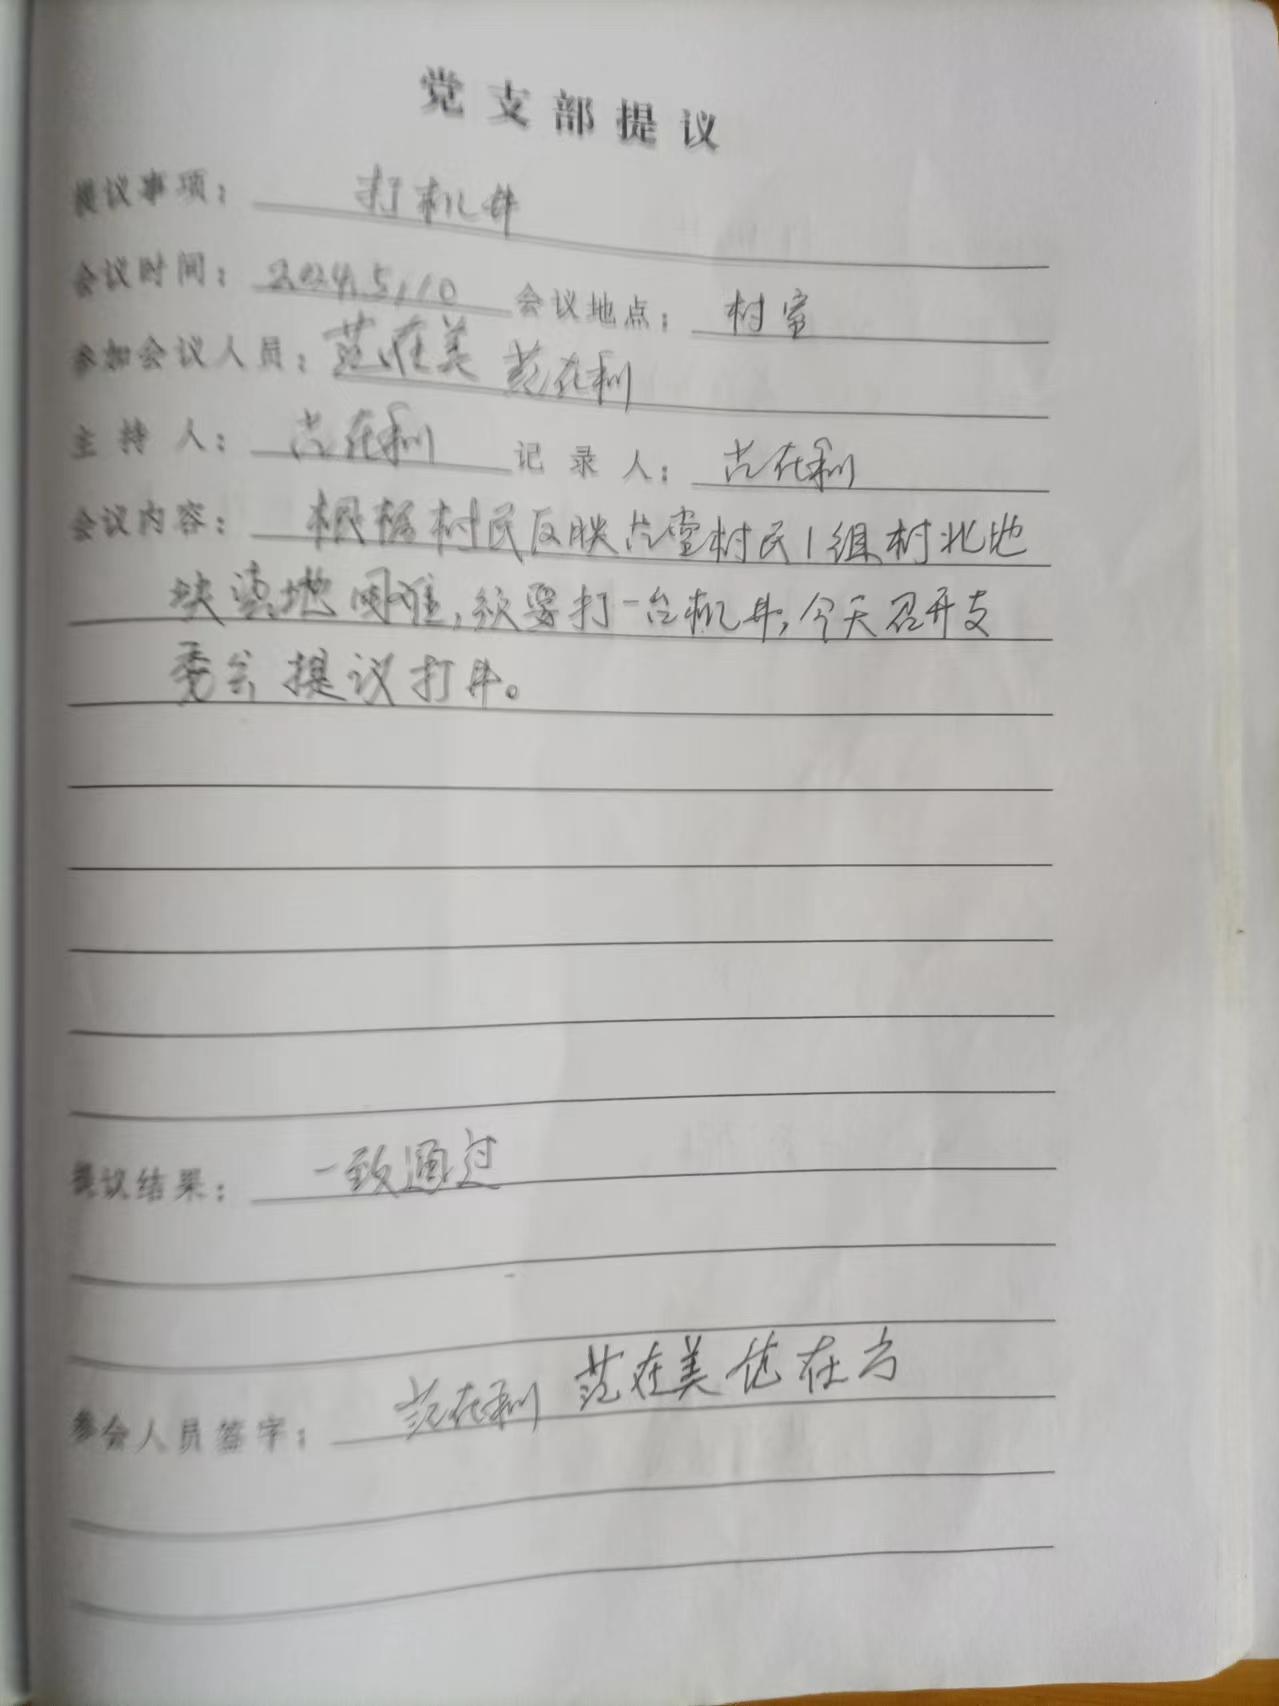 党支部提议
提议事项： 打机井
会议时间： 2024.5.10 会议地点： 村室
参加会议人员： 范在美 范在利
主持人： 范在利 记录人： 范在利
会议内容： 根据村民反映范堂村民1组村北地
块浇地困难，须要打一台机井，今天召开支
委会提议打井。
提议结果： 一致通过
参会人员签字： 范在利 范在美 范在方